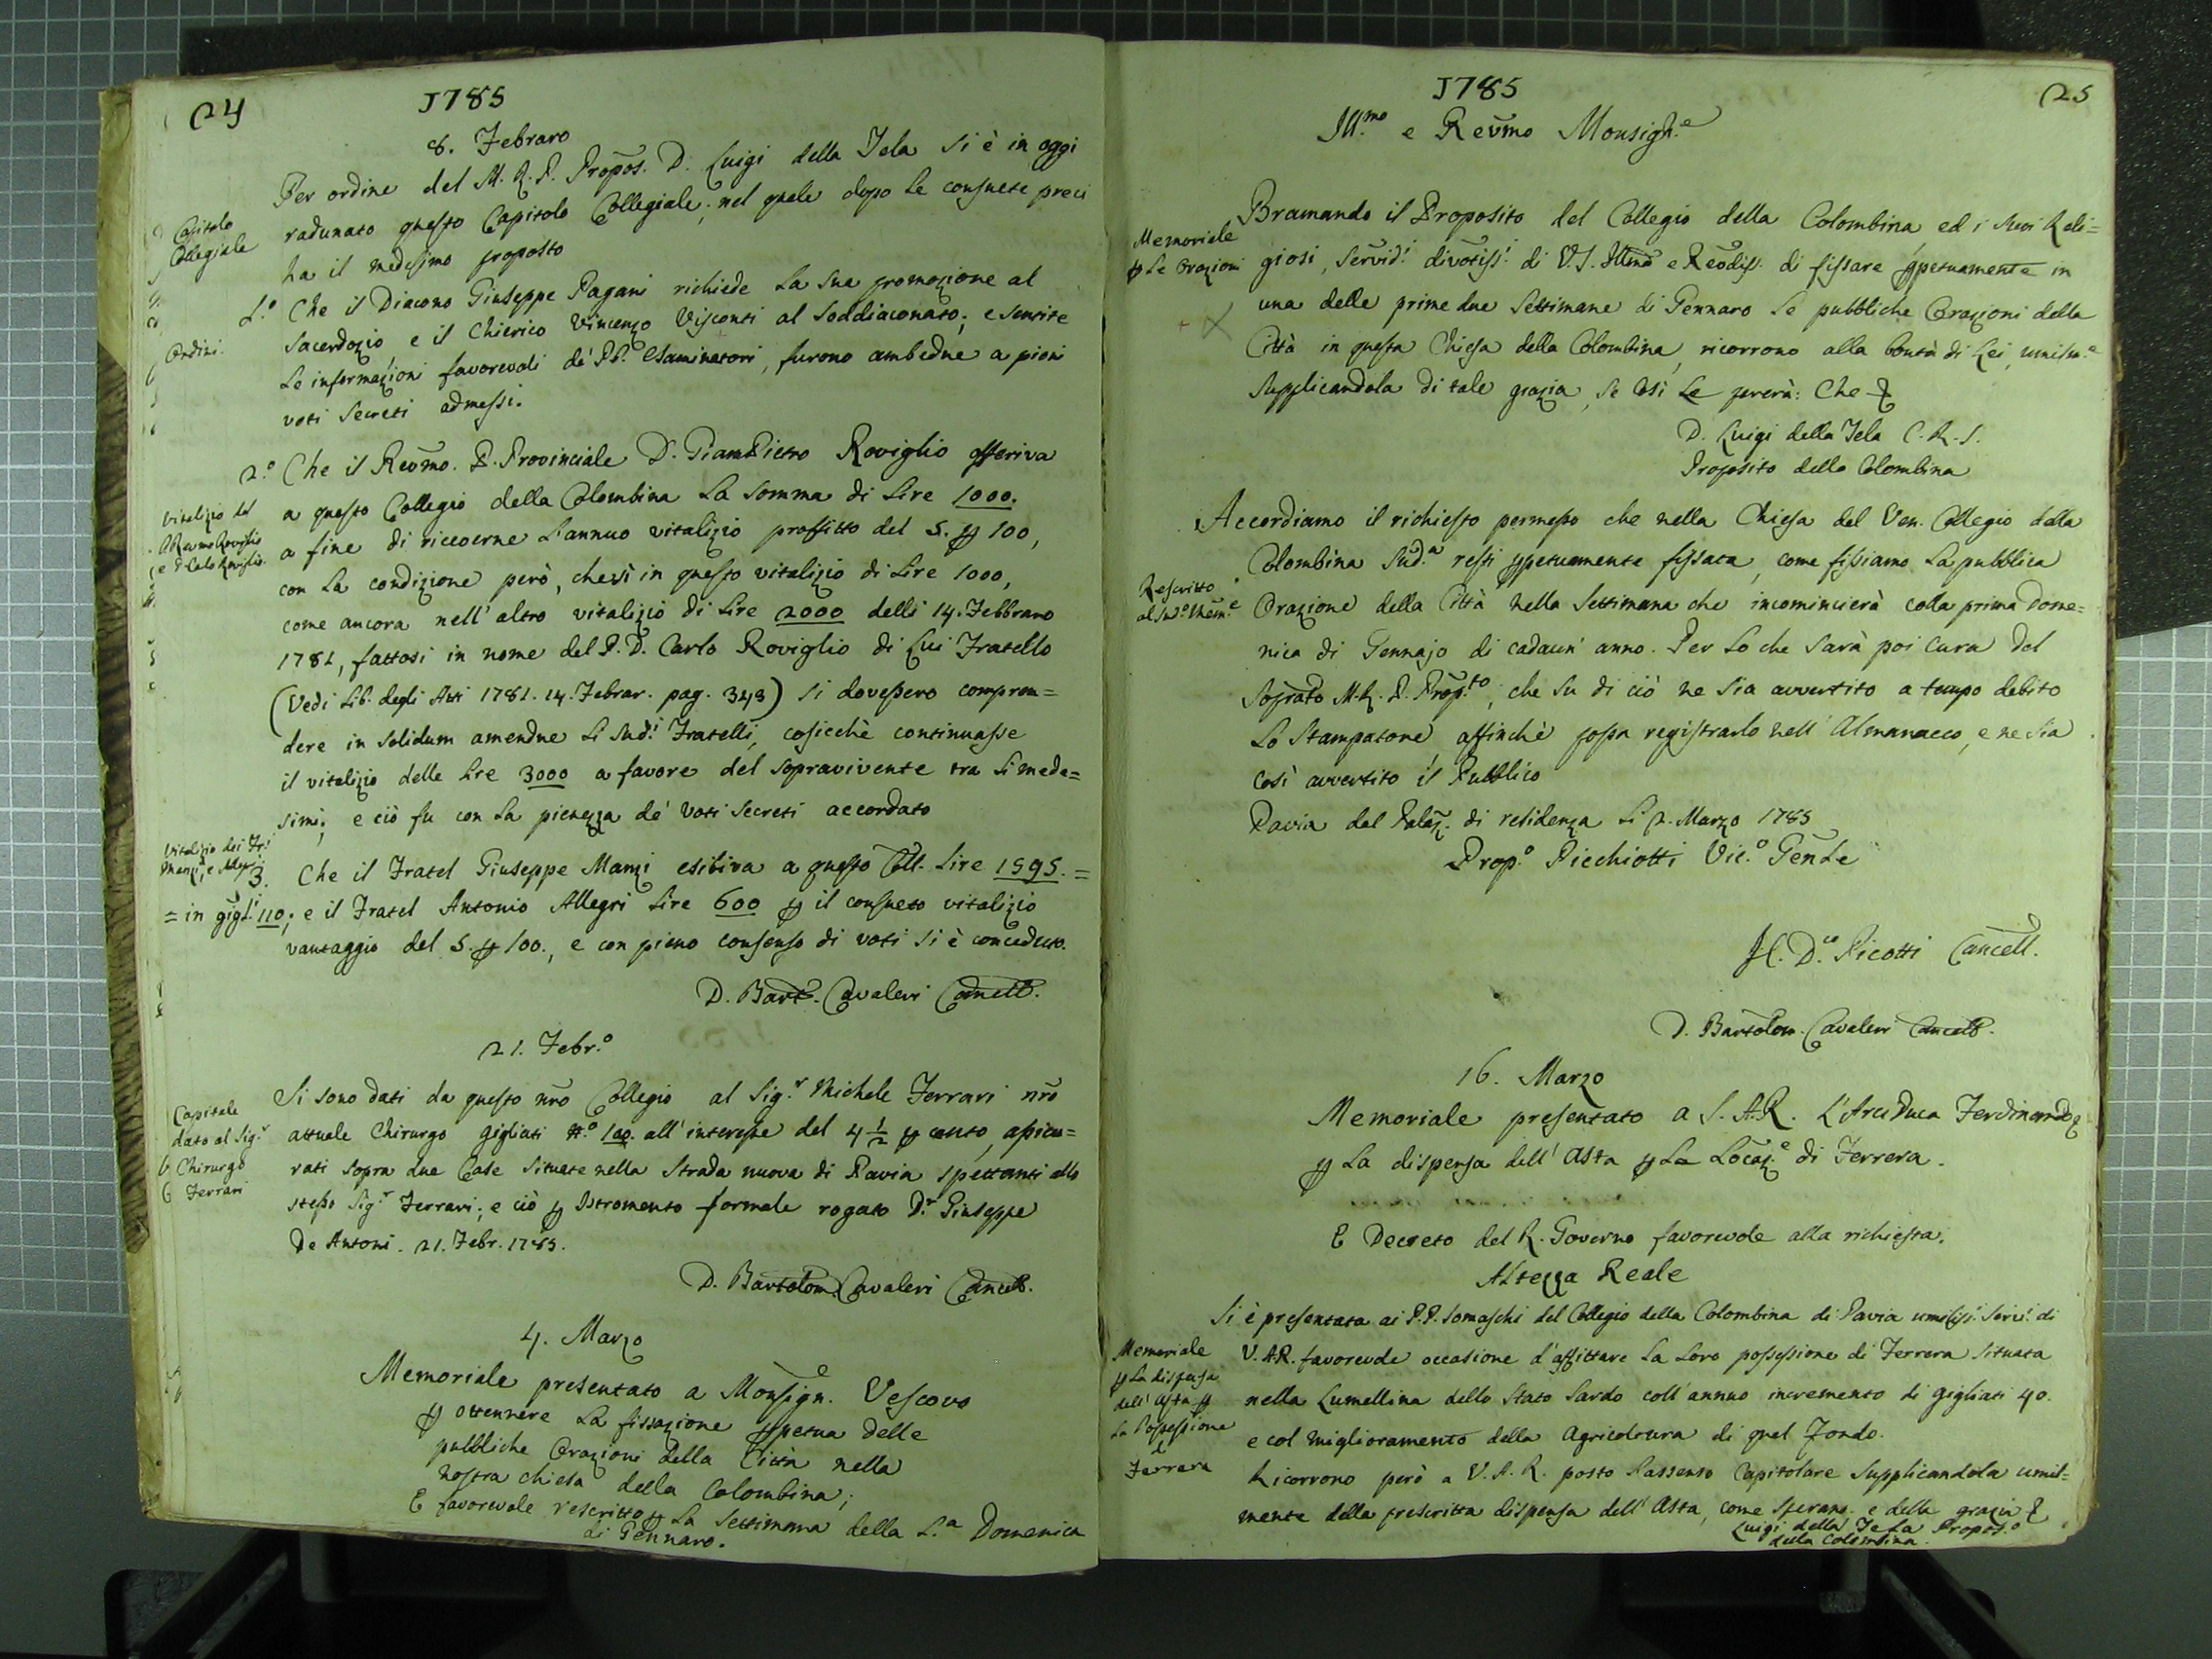 24
1785
8. Febraro
Per ordine del M. R. P. Propos. D. Luigi della Tela si è in oggi
radunato questo Capitolo Collegiale; nel quale dopo le consuete preci
ha il medesimo proposto
Capitolo
Collegiale
1.º Che il Diacono Giuseppe Pagani richiede la sua promozione al
Sacerdozio e il Chierico Vincenzo Visconti al Soddiaconato; e sentite
le informazioni favorevoli de' PP. Esaminatori, furono ambedue a pieni
voti secreti admessi.
Ordini.
2.º Che il Reṽmo. P. Provinciale D. GiamPietro Roviglio offeriva
a questo Collegio della Colombina la somma di Lire 1000.
a fine di riceverne l'annuo vitalizio proffitto del 5. ꝑ 100,
con la condizione però, che sì in questo vitalizio di Lire 1000,
come ancora nell'altro vitalizio di Lire 2000 delli 14. Febbraro
1781, fattosi in nome del P. D. Carlo Roviglio di Lui Fratello
(Vedi Lib. degli Atti 1781. 14. Febrar. pag. 343) si dovessero compren=
dere in solidum amendue li sud.i Fratelli, cosicchè continuasse
il vitalizio delle Lire 3000 a favore del sopravivente tra li mede=
simi; e ciò fu con la pienezza de' voti secreti accordato
Vitalizio del
Reṽmo Roviglio
e D. Carlo Roviglio.
3. Che il Fratel Giuseppe Manzi esibiva a questo Coll. Lire 1595. =
= in gigl.i 110; e il Fratel Antonio Allegri Lire 600 ꝑ il consueto vitalizio
vantaggio del 5. ꝑ 100., e con pieno consenso di voti si è conceduto.
Vitalizio dei Fr.i
Manzi, e Allegri
D. Bart. Cavaleri Cancell.
21. Febr.º
Si sono dati da questo nr̃o Collegio al Sig.r Michele Ferrari nr̃o
attuale Chirurgo gigliati n.º 100. all'interesse del 4 1/2 ꝑ cento, apicu=
rati sopra due Case situate nella Strada nuova di Pavia spettanti allo
stesso Sig.r Ferrari; e ciò ꝑ Istromento formale rogato D.r Giuseppe
De Antoni. 21. Febr. 1785.
Capitale
dato al Sig.r
Chirurgo
Ferrari
D. Bartolom. Cavaleri Cancell.
4. Marzo
Memoriale presentato a Monsign.e Vescovo
ꝑ ottennere la fissazione ꝑpetua delle
pubbliche Orazioni della Città nella
nostra chiesa della Colombina;
E favorevole rescritto ꝑ la Settimana della 1.a Domenica
di Gennaro.
1785
25
Ill.mo e Reṽmo Monsigñ.e
Bramando il Proposito del Collegio della Colombina ed i suoi Reli=
giosi, Servid.i divotiss.i di V. S. Illm̃a e Reṽdiss. di fissare ꝑpetuamente in
una delle prime due Settimane di Gennaro le pubbliche Orazioni della
Città in questa Chiesa della Colombina, ricorrono alla bontà di Lei, umilm.e
supplicandola di tale grazia, se così Le parerà: Che &
Memoriale
ꝑ le Orazioni
D. Luigi della Tela C. R. S.
Proposito della Colombina
Accordiamo il richiesto permesso che nella Chiesa del Ven. Collegio della
Colombina sud.a resti ꝑpetuamente fissata, come fissiamo la pubblica
Orazione della Città nella Settimana che incomincierà colla prima Dome=
nica di Gennajo di cadaun' anno. Per lo che sarà poi cura del
Soprato M. R. P. Prop.to, che su di ciò ne sia avvertito a tempo debito
lo Stampatore, affinchè possa registrarlo nell'Almanacco, e ne sia
così avvertito il Pubblico
Pavia dal Palaz. di residenza li 2. Marzo 1785
Rescritto
al sud.º Mem.e
Prop.º Picchiotti Vic.º Gen̄le
D.co Picotti Cancell.
D. Bartolom. Cavaleri Cancell.
16. Marzo
Memoriale presentato a S. A. R. l'Arciduca Ferdinando
ꝑ la dispensa dell'Asta ꝑ la Locaz.e di Ferrera.
E Decreto del R. Governo favorevole alla richiesta.
Altezza Reale
Si è presentata ai P.P. Somaschi del Collegio della Colombina di Pavia umiliss.i Servi.i di
V. A. R. favorevole occasione d'affittare la loro possessione di Ferrera situata
nella Lumellina dello Stato Sardo coll'annuo incremento di gigliati 40.
e col miglioramento della Agricoltura di quel Fondo.
Ricorrono però a V. A. R. posto l'assenso Capitolare supplicandola umil=
mente della prescritta dispensa dell'Asta, come sperano. e della grazia &
Memoriale
ꝑ la dispensa
dell'Asta ꝑ
la Possessione
di
Ferrera
Luigi della Tela Propos.º
della Colombina.